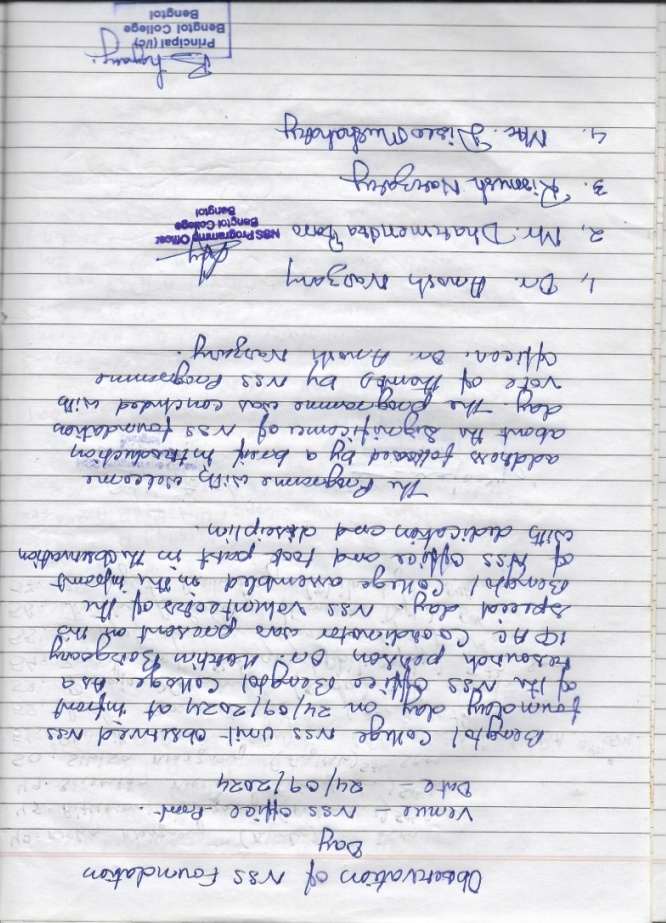 Observation of NSS Foundation
Day
Venue - NSS office front.
Date - 24/09/2024
Bengtol College NSS unit observed NSS
founday day on 24/09/2024 at infront
of the NSS office Bengtol College. As a
resourch person Dr. Boisgoary
IQAC Coordinator was present on this
speced day. NSS volunteeres of the
Bengtol College assembled in the infront
of NSS office and took part in the observation
with dedication and desciption.
The Programme with welcome
address followed by a brief introduction
about the significance of NSS foundation
day. The programme was concluded with
vote of thanks by NSS Programme
officer. Dr. Amosh Narzary.
1, Dr. Amosh Narzary
2, Mr. Dharmendra Boro
NSS Programme Officer
Bengtol College
Bengtol
3. Narzary
4.
Principal (I/C)
Bengtol College
Bengtol